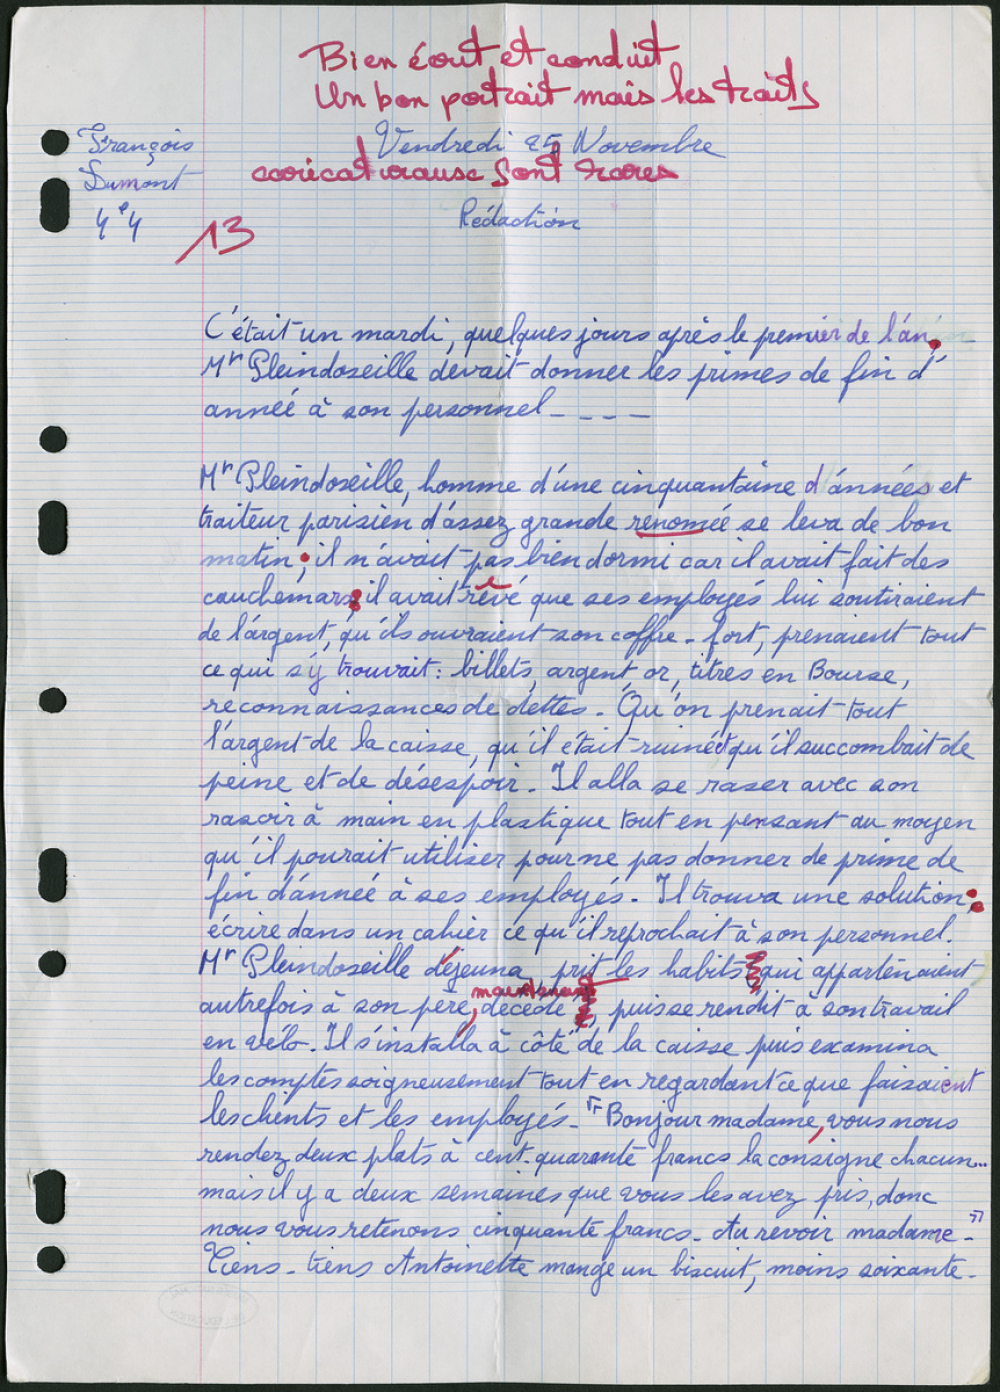 Bien écrit et conduit
Un bon portrait mais les traits
François
Vendredi 25 Novembre
Dumont
caricaturaux sont rares
4e4
Rédaction
13
C'était un mardi, quelques jours après le premier de l'an.
Mr Pleindoseille devait donner les primes de fin d'
année à son personnel - - - -
Mr Pleindoseille, homme d'une cinquantaine d'années et
traiteur parisien d'assez grande renomée se leva de bon
matin ; il n'avait pas bien dormi car il avait fait des
cauchemars ; il avait rêvé que ses employés lui soutiraient
de l'argent, qu'ils ouvraient son coffre-fort, prenaient tout
ce qui s'y trouvait : billets, argent, or, titres en Bourse,
reconnaissances de dettes. Qu'on prenait tout
l'argent de la caisse, qu'il était ruiné et qu'il succombait de
peine et de désespoir. Il alla se raser avec son
rasoir à main en plastique tout en pensant au moyen
qu'il pourait utiliser pour ne pas donner de prime de
fin d'année à ses employés. Il trouva une solution :
écrire dans un cahier ce qu'il reprochait à son personnel.
Mr Pleindoseille déjeuna, prit les habits qui appartenaient
maintenant
autrefois à son père, décédé, puis se rendit à son travail
en vélo. Il s'installa à côté de la caisse puis examina
les comptes soigneusement tout en regardant ce que faisaient
les clients et les employés. "Bonjour madame, vous nous
rendez deux plats à cent-quarante francs la consigne chacun...
mais il y a deux semaines que vous les avez pris, donc
nous vous retenons cinquante francs. Au revoir madame."
Tiens-tiens Antoinette mange un biscuit, moins soixante-